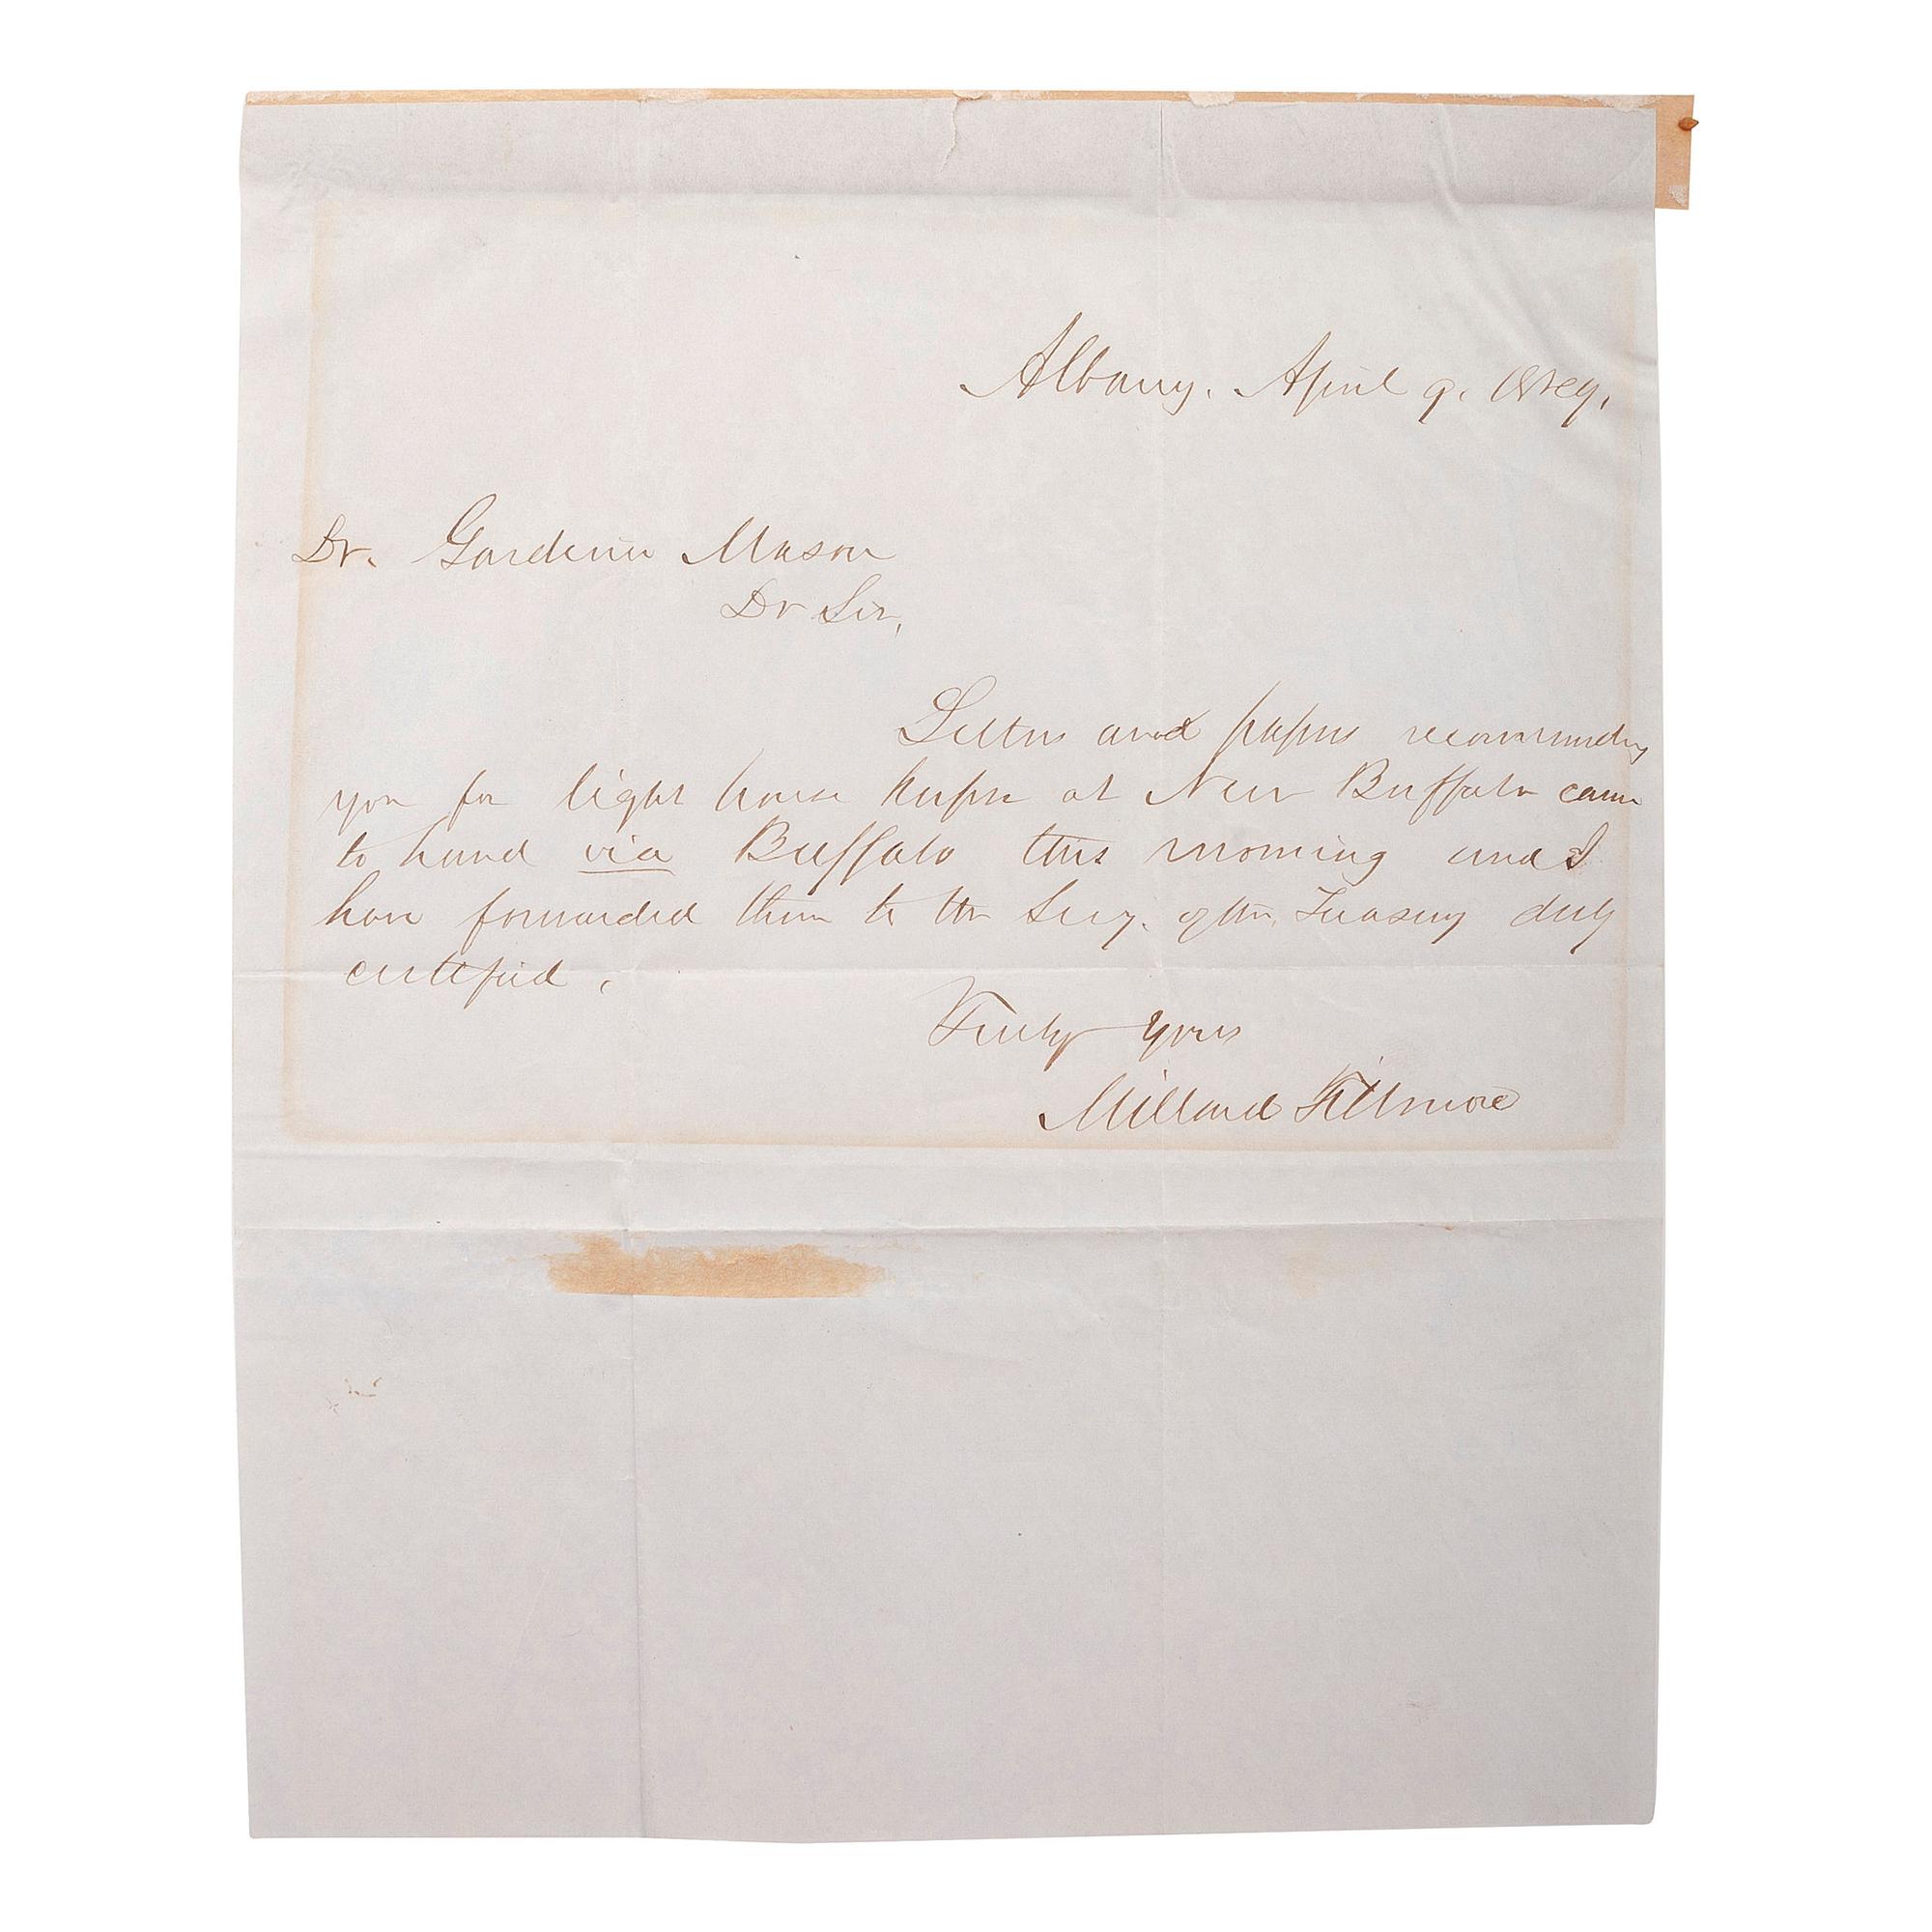 Albany. April 9. 1849.
Dr. Gardenier Mason
Dr Sir,
Letters and papers recommending
you for light house keeper at New Buffalo came
to hand via Buffalo this morning and I
have forwarded them to the Secy. of the Treasury duly
certified.
Truly yours
Millard Fillmore